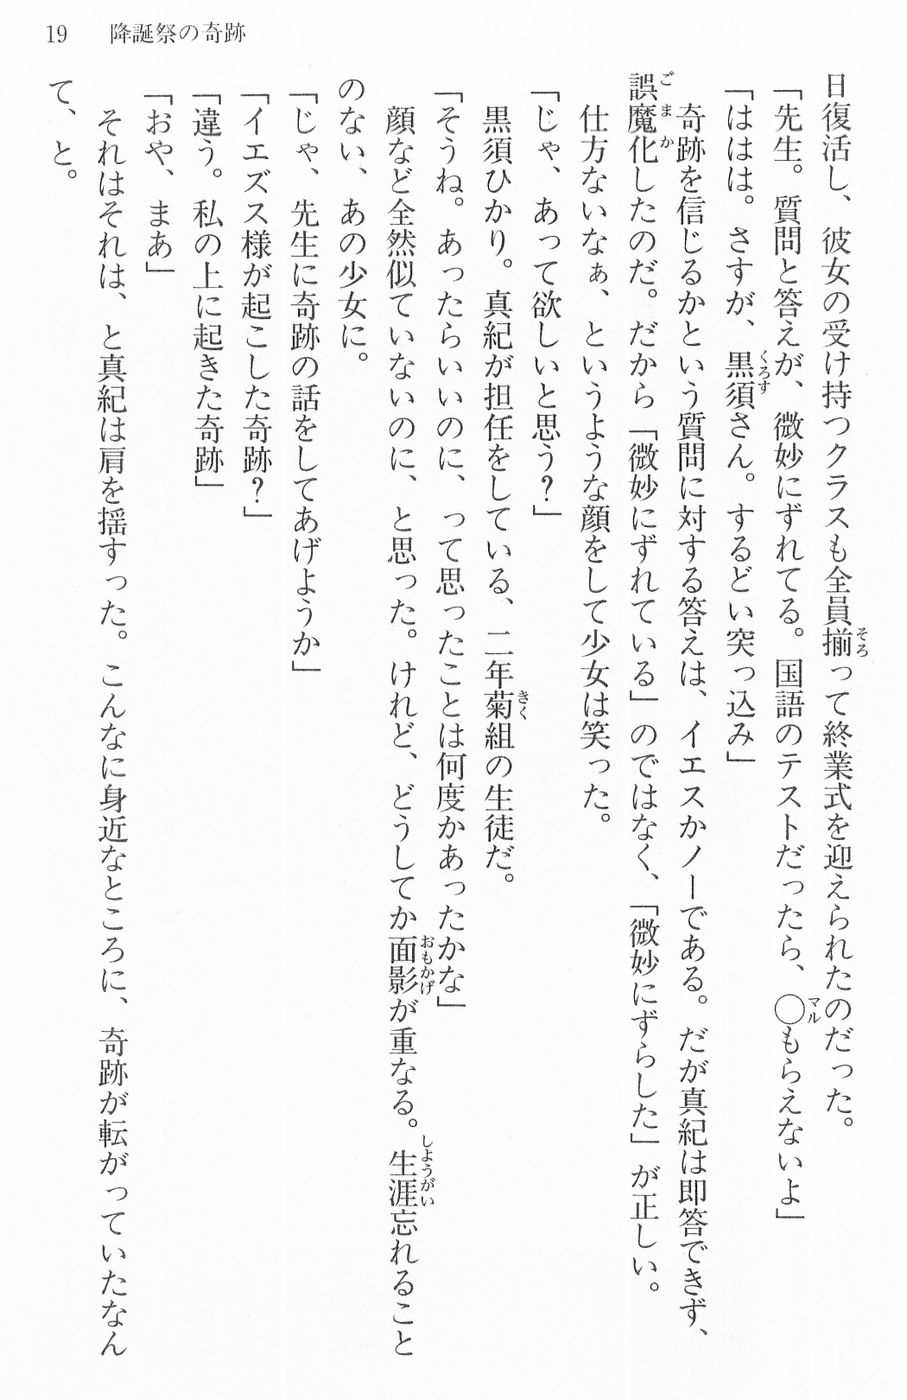 19　降誕祭の奇跡
日復活し、彼女の受け持つクラスも全員揃って終業式を迎えられたのだった。
「先生。質問と答えが、微妙にずれてる。国語のテストだったら、◯もらえないよ」
「ははは。さすが、黒須さん。するどい突っ込み」
　奇跡を信じるかという質問に対する答えは、イエスかノーである。だが真紀は即答できず、
誤魔化したのだ。だから「微妙にずれている」のではなく、「微妙にずらした」が正しい。
　仕方ないなぁ、というような顔をして少女は笑った。
「じゃ、あって欲しいと思う？」
　黒須ひかり。真紀が担任をしている、二年菊組の生徒だ。
「そうね。あったらいいのに、って思ったことは何度かあったかな」
　顔など全然似ていないのに、と思った。けれど、どうしてか面影が重なる。生涯忘れること
のない、あの少女に。
「じゃ、先生に奇跡の話をしてあげようか」
「イエズス様が起こした奇跡？」
「違う。私の上に起きた奇跡」
「おや、まあ」
　それはそれは、と真紀は肩を揺すった。こんなに身近なところに、奇跡が転がっていたなん
て、と。